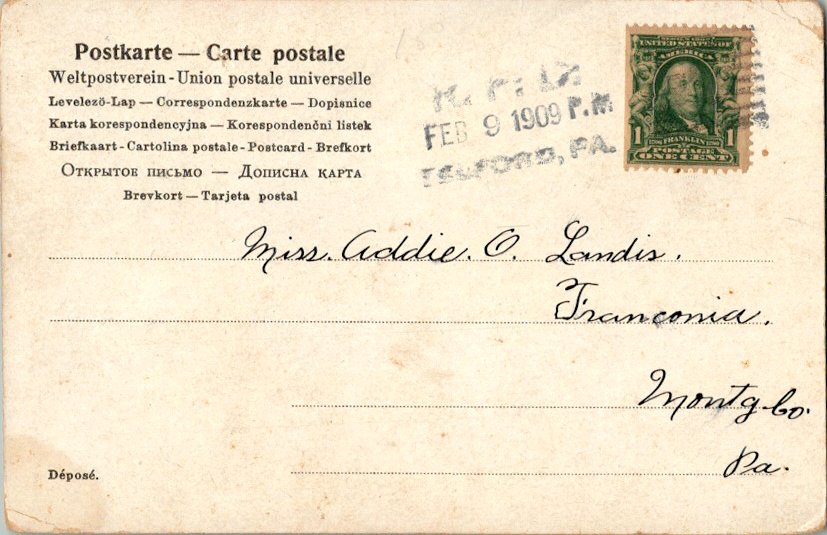 Postkarte — Carte postale
Weltpostverein - Union postale universelle
Levelező-Lap — Correspondenzkarte — Dopisnice
Karta korespondencyjna — Korespondenčni listek
Briefkaart - Cartolina postale - Postcard - Brefkort
Открытое письмо — Дописна карта
Brevkort — Tarjeta postal
FEB 9 1909 P.M
TELFORD, PA.
UNITED STATES OF
AMERICA
1 FRANKLIN 1
POSTAGE
ONE CENT
Miss. Addie. O. Landis.
Franconia.
Montg. Co.
Pa.
Déposé.